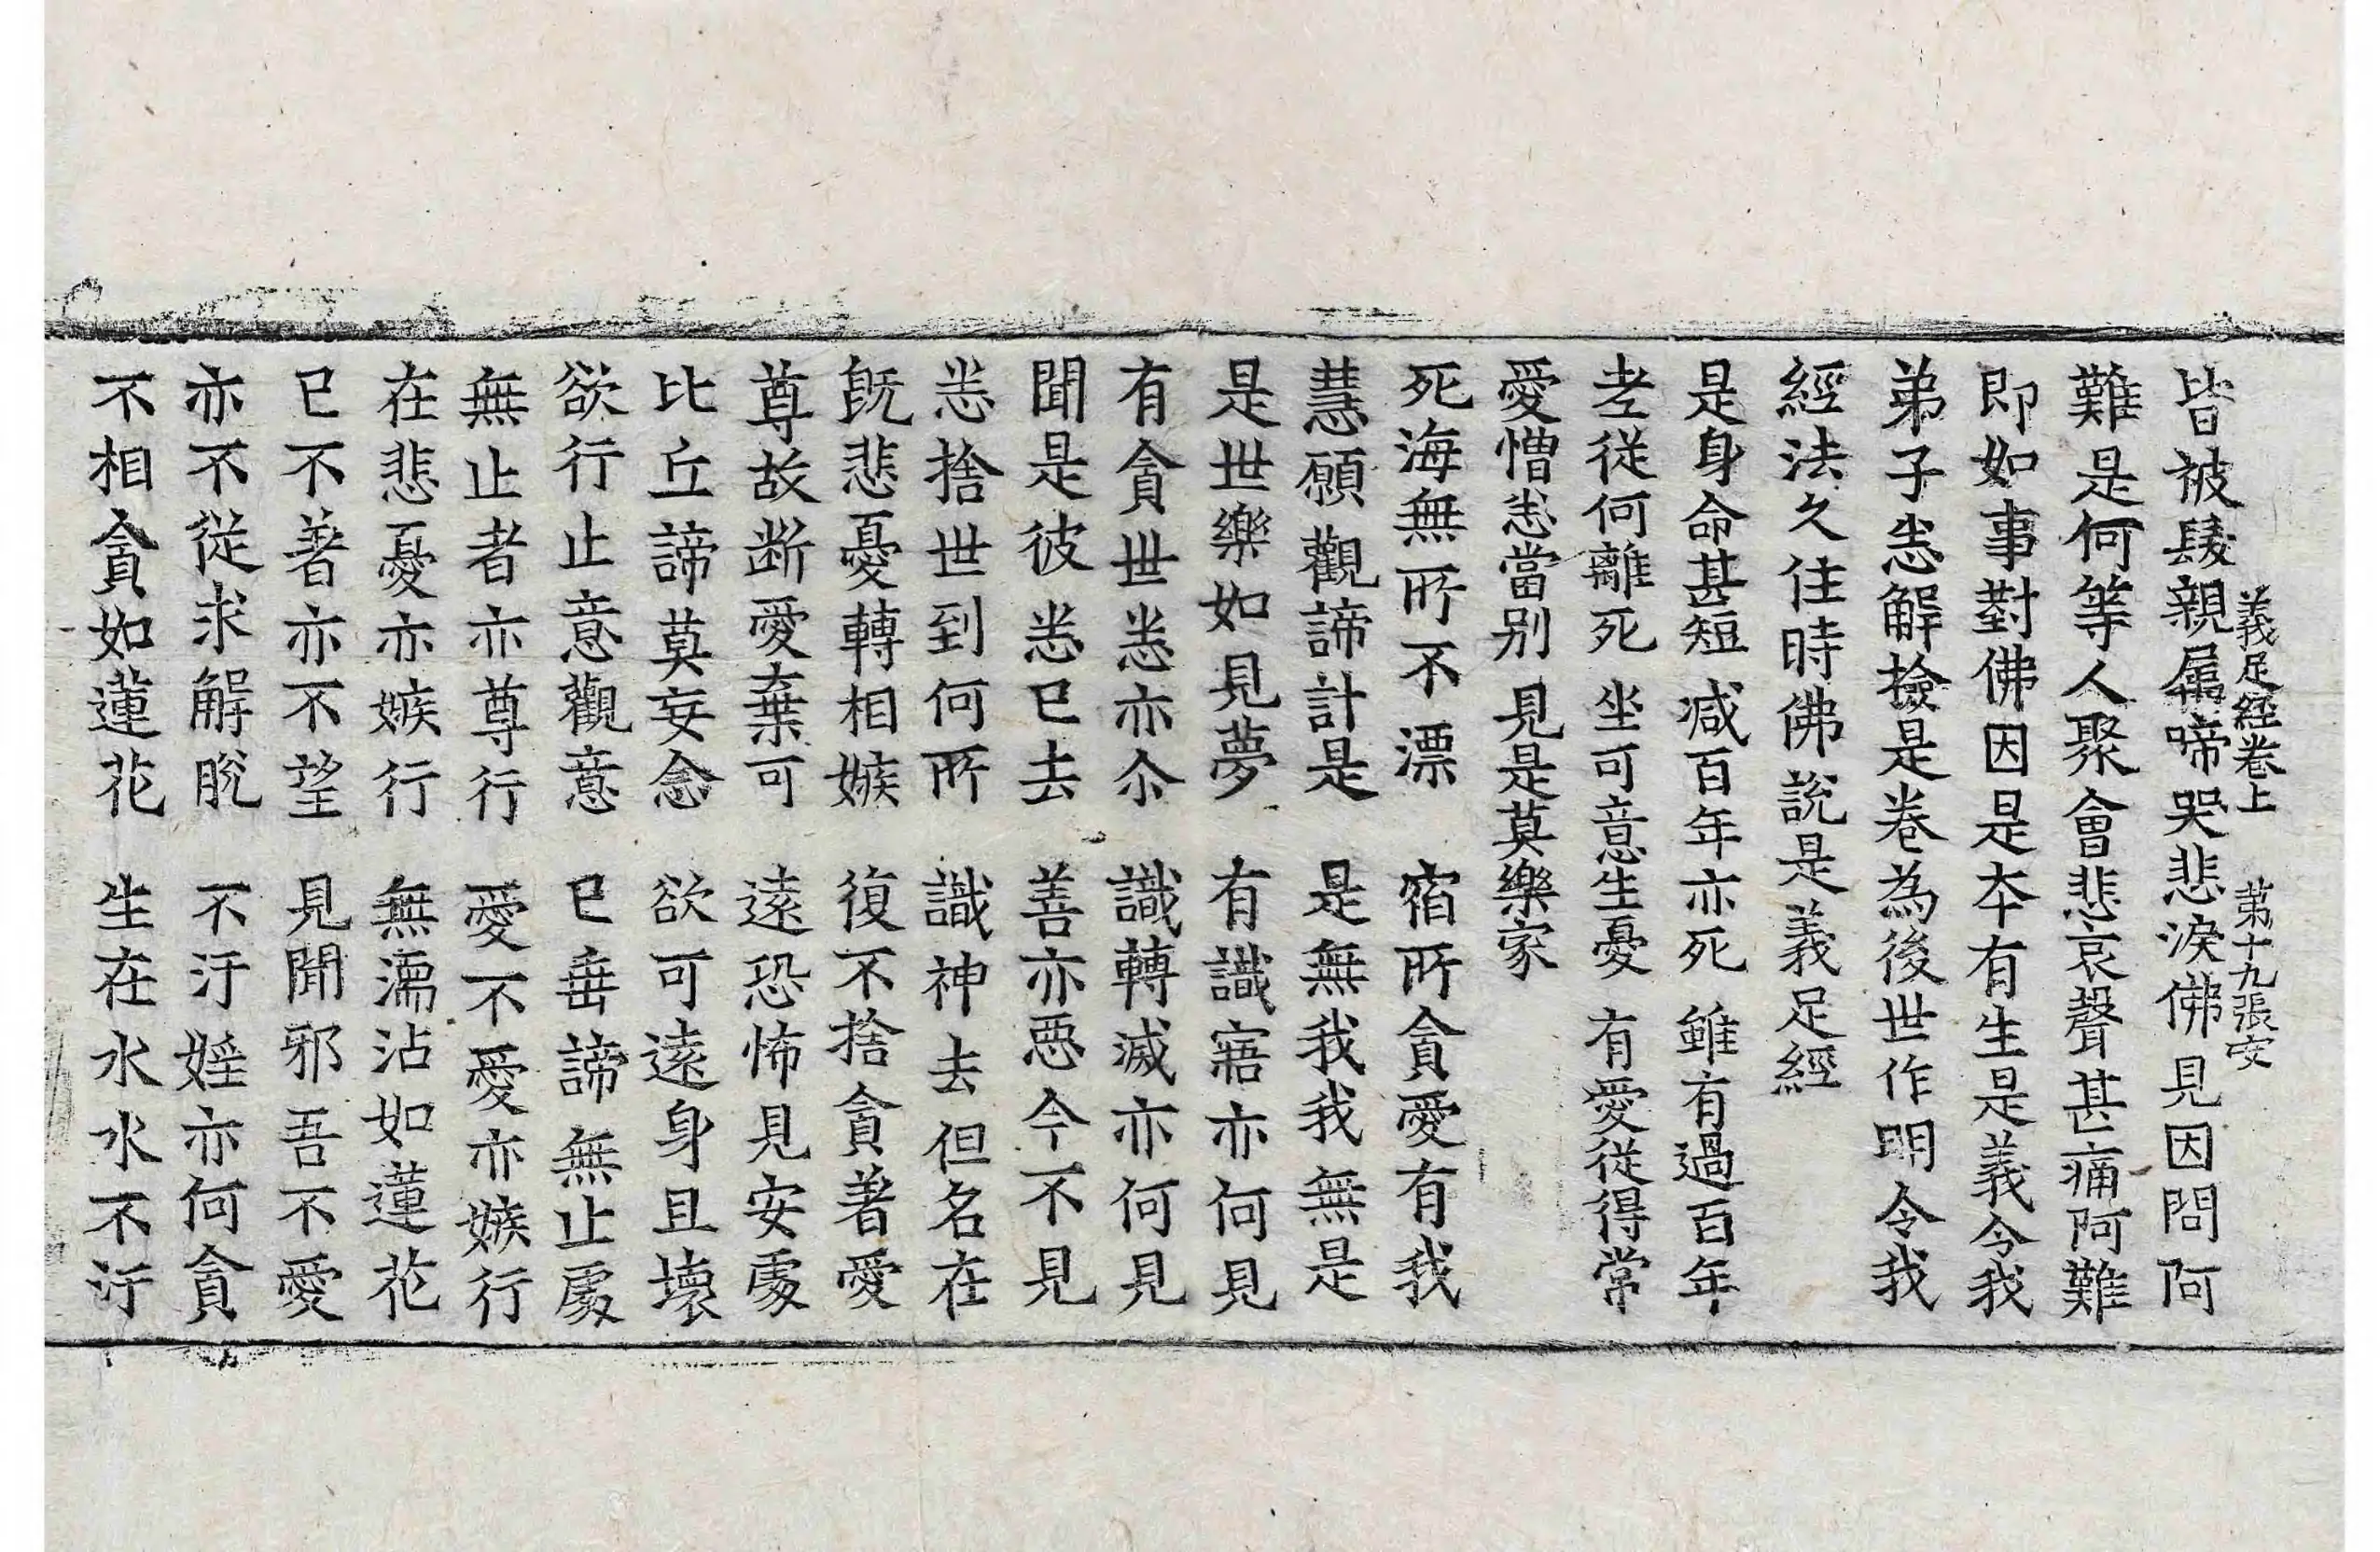 義足経卷上　第十九張安
皆被髮親属啼哭悲淚佛見因問阿
難是何等人聚會悲哀聲甚痛阿難
即如事對佛因是本有生是義令我
弟子悉解撿是卷為後世作明令我
經法久住時佛說是義足經
是身命甚短　減百年亦死　雖有過百年
老從何離死　坐可意生憂　有愛從得常
愛憎悉當別　見是莫樂家
死海無所不漂　宿所貪愛有我
慧願觀諦計是　是無我我無是
是世樂如見夢　有識寤亦何見
有貪世悉亦尒　識轉滅亦何見
聞是彼悉已去　善亦惡今不見
悉捨世到何所　識神去但名在
旣悲憂轉相嫉　復不捨貪著愛
尊故断愛棄可　遠恐怖見安處
比丘諦莫妄念　欲可遠身且壞
欲行止意觀意　已垂諦無止處
無止者亦尊行　愛不愛亦嫉行
在悲憂亦嫉行　無濡沾如蓮花
已不著亦不望　見聞邪吾不愛
亦不從求解脫　不汙婬亦何貪
不相貪如蓮花　生在水水不汙